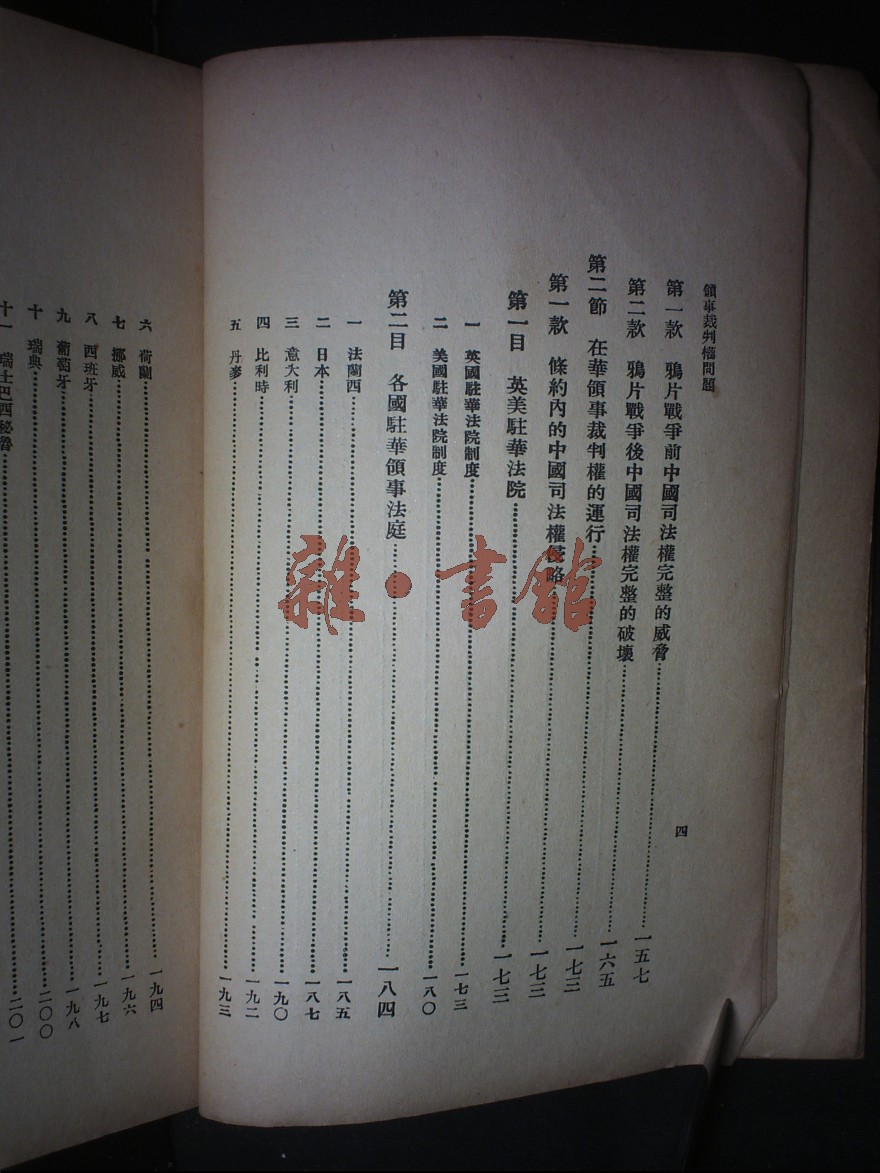 領事裁判權問題
四
第一款 鴉片戰爭前中國司法權完整的威脅 一五七
第二款 鴉片戰爭後中國司法權完整的破壞 一六五
第二節 在華領事裁判權的運行 一七三
第一款 條約內的中國司法權侵略 一七三
第一目 英美駐華法院 一七三
一 英國駐華法院制度 一七三
二 美國駐華法院制度 一八〇
第二目 各國駐華領事法庭 一八四
一 法蘭西 一八五
二 日本 一八七
三 意大利 一九〇
四 比利時 一九二
五 丹麥 一九三
六 荷蘭 一九四
七 挪威 一九六
八 西班牙 一九七
九 葡萄牙 一九八
十 瑞典 二〇〇
十一 瑞士巴西秘魯 二〇一
雜·書館